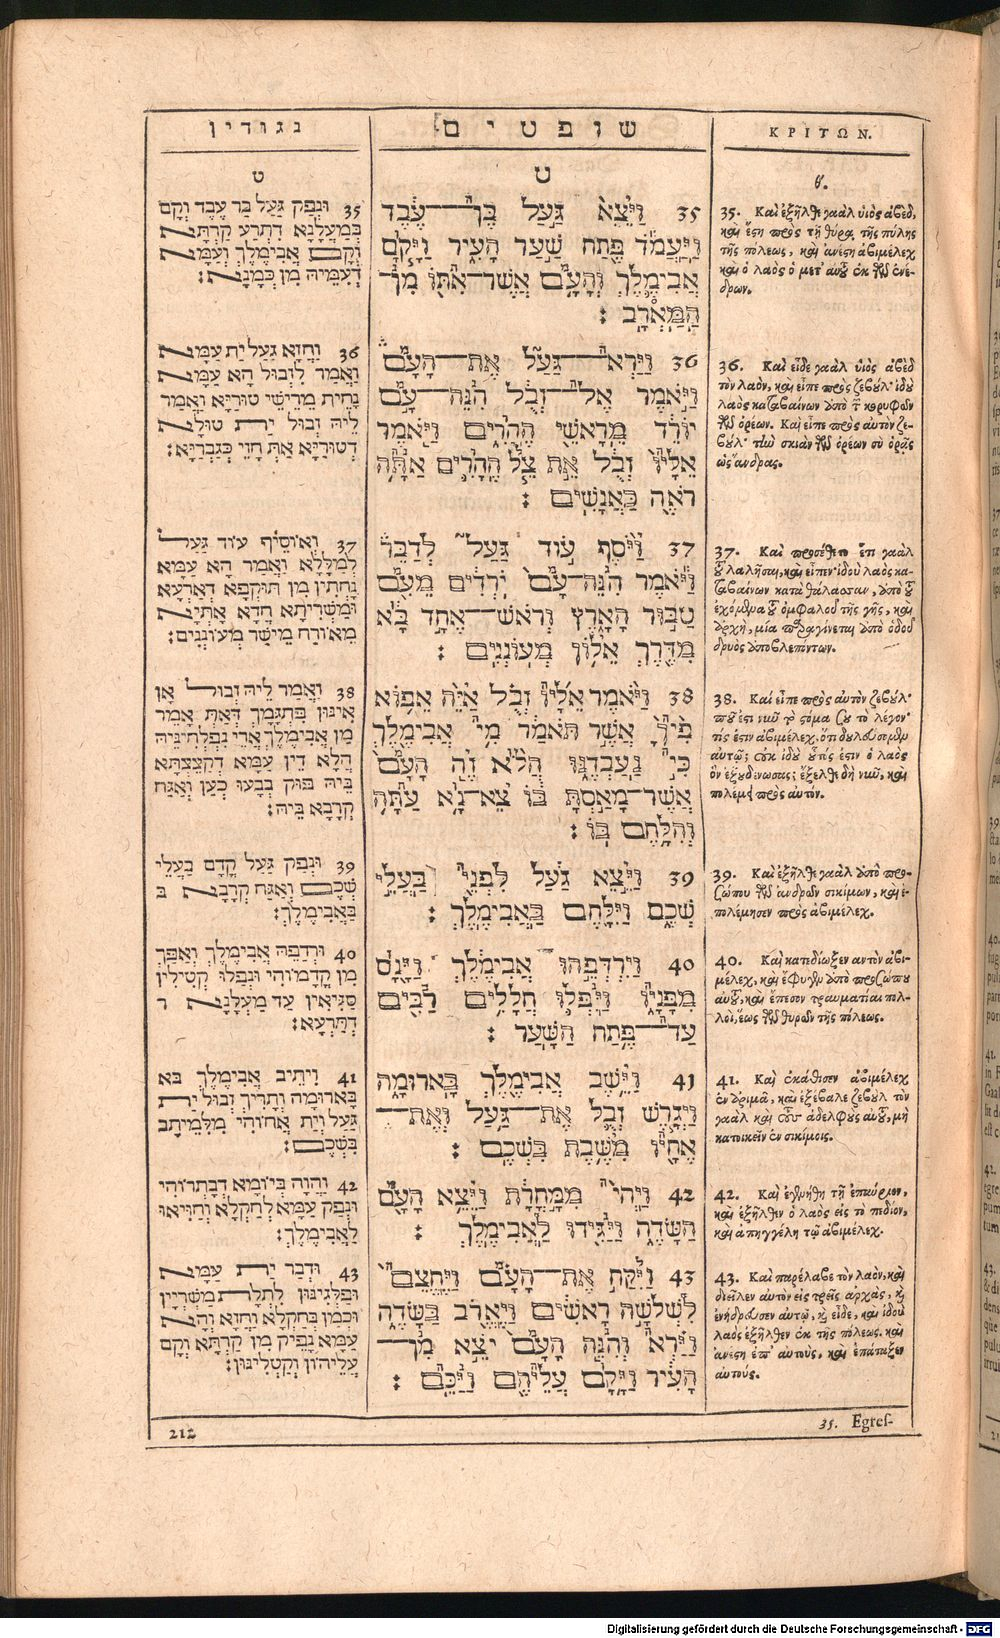 נגודין
שופטים
ΚΡΙΤΩΝ.
ט
35 וּנְפַק גַּעַל בַּר עֶבֶד וְקָם
בְּמַעֲלָנָא דִתְרַע קַרְתָּא
וְקָם אֲבִימֶלֶךְ וְעַמָּא
דְעִמֵּיהּ מִן כְּמָנָא׃
36 וַחֲזָא גַעַל יַת עַמָּא
וַאֲמַר לִזְבוּל הָא עַמָּא
נָחֵית מֵרֵישֵׁי טוּרַיָּא וַאֲמַר
לֵיהּ זְבוּל יַת טוּלָא
דְטוּרַיָּא אַתְּ חָזֵי כְּגֻבְרַיָּא׃
37 וְאוֹסֵיף עוֹד גַּעַל
לְמַלָּלָא וַאֲמַר הָא עַמָּא
נָחֲתִין מִן תּוּקְפָא דְאַרְעָא
וּמַשְׁרִיתָא חֲדָא אָתְיָא
מֵאוֹרַח מֵישַׁר מְעוֹנְנִים׃
38 וַאֲמַר לֵיהּ זְבוּל אָן
אִינּוּן פִּתְגָּמָךְ דְּאַתְּ אָמֵר
מַן אֲבִימֶלֶךְ אֲרֵי נִפְלְחִינֵּיהּ
הֲלָא דֵין עַמָּא דְקַצְתָּא
בֵּיהּ פּוּק בְּבָעוּ כְעַן וַאֲגַח
קְרָבָא בֵּיהּ׃
39 וּנְפַק גַּעַל קֳדָם בַּעֲלֵי
שְׁכֶם וַאֲגַח קְרָבָא
בַּאֲבִימֶלֶךְ׃
40 וּרְדָפֵהּ אֲבִימֶלֶךְ וַאֲפַךְ
מִן קֳדָמוֹהִי וּנְפַלוּ קְטִילִין
סַגִּיאִין עַד מַעֲלָנָא
דְתַרְעָא׃
41 וִיתֵיב אֲבִימֶלֶךְ
בָּארוּמָה וְתָרֵיךְ זְבוּל יַת
גַּעַל וְיַת אֲחוֹהִי מִלְּמִיתַב
בִּשְׁכֶם׃
42 וַהֲוָה בְּיוֹמָא דְבַתְרוֹהִי
וּנְפַק עַמָּא לְחַקְלָא וְחַוִּיאוּ
לַאֲבִימֶלֶךְ׃
43 וּדְבַר יַת עַמָּא
וּפַלְּגִינּוּן לִתְלָת מַשְׁרְיָן
וּכְמַן בְּחַקְלָא וַחֲזָא וְהָא
עַמָּא נָפֵיק מִן קַרְתָּא וְקָם
עֲלֵיהוֹן וְקַטְלִינּוּן׃
ט
35 וַיֵּצֵא גַּעַל בֶּן־עֶבֶד
וַיַּעֲמֹד פֶּתַח שַׁעַר הָעִיר וַיָּקָם
אֲבִימֶלֶךְ וְהָעָם אֲשֶׁר־אִתּוֹ מִן־
הַמַּאְרָב׃
36 וַיַּרְא־גַּעַל אֶת־הָעָם
וַיֹּאמֶר אֶל־זְבֻל הִנֵּה־עָם
יוֹרֵד מֵרָאשֵׁי הֶהָרִים וַיֹּאמֶר
אֵלָיו זְבֻל אֵת צֵל הֶהָרִים אַתָּה
רֹאֶה כַּאֲנָשִׁים׃
37 וַיֹּסֶף עוֹד גַּעַל לְדַבֵּר
וַיֹּאמֶר הִנֵּה־עָם יֹרְדִים מֵעִם
טַבּוּר הָאָרֶץ וְרֹאשׁ־אֶחָד בָּא
מִדֶּרֶךְ אֵלוֹן מְעוֹנְנִים׃
38 וַיֹּאמֶר אֵלָיו זְבֻל אַיֵּה אֵפוֹא
פִיךָ אֲשֶׁר תֹּאמַר מִי אֲבִימֶלֶךְ
כִּי נַעַבְדֶנּוּ הֲלֹא זֶה הָעָם
אֲשֶׁר־מָאַסְתָּ בּוֹ צֵא־נָא עַתָּה
וְהִלָּחֶם בּוֹ׃
39 וַיֵּצֵא גַעַל לִפְנֵי בַּעֲלֵי
שְׁכֶם וַיִּלָּחֶם בַּאֲבִימֶלֶךְ׃
40 וַיִּרְדְּפֵהוּ אֲבִימֶלֶךְ וַיָּנָס
מִפָּנָיו וַיִּפְּלוּ חֲלָלִים רַבִּים
עַד־פֶּתַח הַשָּׁעַר׃
41 וַיֵּשֶׁב אֲבִימֶלֶךְ בָּארוּמָה
וַיְגָרֶשׁ זְבֻל אֶת־גַּעַל וְאֶת־
אֶחָיו מִשֶּׁבֶת בִּשְׁכֶם׃
42 וַיְהִי מִמָּחֳרָת וַיֵּצֵא הָעָם
הַשָּׂדֶה וַיַּגִּידוּ לַאֲבִימֶלֶךְ׃
43 וַיִּקַּח אֶת־הָעָם וַיֶּחֱצֵם
לִשְׁלֹשָׁה רָאשִׁים וַיֶּאֱרֹב בַּשָּׂדֶה
וַיַּרְא וְהִנֵּה הָעָם יֹצֵא מִן־
הָעִיר וַיָּקָם עֲלֵיהֶם וַיַּכֵּם׃
θ.
35. Καὶ ἐξῆλθε γαὰλ ὑιὸς ἀβὲδ,
καὶ ἔστη πρὸς τῇ θύρᾳ τῆς πύλης
τῆς πόλεως, καὶ ἀνέστη ἀβιμέλεχ
καὶ ὁ λαὸς ὁ μετ' αὐτοῦ ἐκ τῶν ἐνέ-
δρων.
36. Καὶ εἶδε γαὰλ ὑιὸς ἀβὲδ
τὸν λαὸν, καὶ εἶπε πρὸς ζεβούλ· ἰδοὺ
λαὸς καταβαίνων ἀπὸ τῶν κορυφῶν
τῶν ὀρέων. Καὶ εἶπε πρὸς αὐτὸν ζε-
βούλ· τὴν σκιὰν τῶν ὀρέων σὺ ὁρᾷς
ὡς ἄνδρας.
37. Καὶ προσέθετο ἔτι γαὰλ
τοῦ λαλῆσαι, καὶ εἶπεν· ἰδοὺ λαὸς κα-
ταβαίνων κατὰ θάλασσαν, ἀπὸ τοῦ
ἐχόμενα τοῦ ὀμφαλοῦ τῆς γῆς, καὶ
ἀρχὴ μία παραγίνεται ἀπὸ ὁδοῦ
δρυὸς ἀποβλεπόντων.
38. Καὶ εἶπε πρὸς αὐτὸν ζεβούλ·
ποῦ ἐστι νῦν τὸ στόμα σου τὸ λέγον·
τίς ἐστιν ἀβιμέλεχ, ὅτι δουλεύσομεν
αὐτῷ; οὐκ ἰδοὺ οὗτός ἐστιν ὁ λαὸς
ὃν ἐξουδένωσας; ἔξελθε δὴ νῦν, καὶ
πολέμει πρὸς αὐτόν.
39. Καὶ ἐξῆλθε γαὰλ ἀπὸ προ-
σώπου τῶν ἀνδρῶν σικίμων, καὶ ἐ-
πολέμησεν πρὸς ἀβιμέλεχ.
40. Καὶ κατεδίωξεν αυτὸν ἀβι-
μέλεχ, καὶ ἔφυγεν ἀπὸ προσώπου
αὐτοῦ, καὶ ἔπεσον τραυματίαι πολ-
λοὶ, ἕως τῶν θυρῶν τῆς πόλεως.
41. Καὶ ἐκάθισεν ἀβιμέλεχ
ἐν ἀριμᾶ, καὶ ἐξέβαλε ζεβοὺλ τὸν
γαὰλ καὶ τοὺς ἀδελφοὺς αὐτοῦ, μὴ
κατοικεῖν ἐν σικίμοις.
42. Καὶ ἐγενήθη τῇ ἐπαύριον,
καὶ ἐξῆλθεν ὁ λαὸς εἰς τὸ πεδίον,
καὶ ἀπηγγέλη τῷ ἀβιμέλεχ.
43. Καὶ παρέλαβε τὸν λαὸν, καὶ
διεῖλεν αυτὸν εἰς τρεῖς αρχὰς, καὶ
ἐνήδρευσεν αυτῷ, καὶ εἶδε, καὶ ἰδοὺ
λαὸς ἐξῆλθεν ἐκ τῆς πόλεως. καὶ
ἀνέστη ἐπ' αυτοὺς, καὶ ἐπάταξεν
αυτούς.
212
35. Egres-
Digitalisierung gefördert durch die Deutsche Forschungsgemeinschaft - DFG